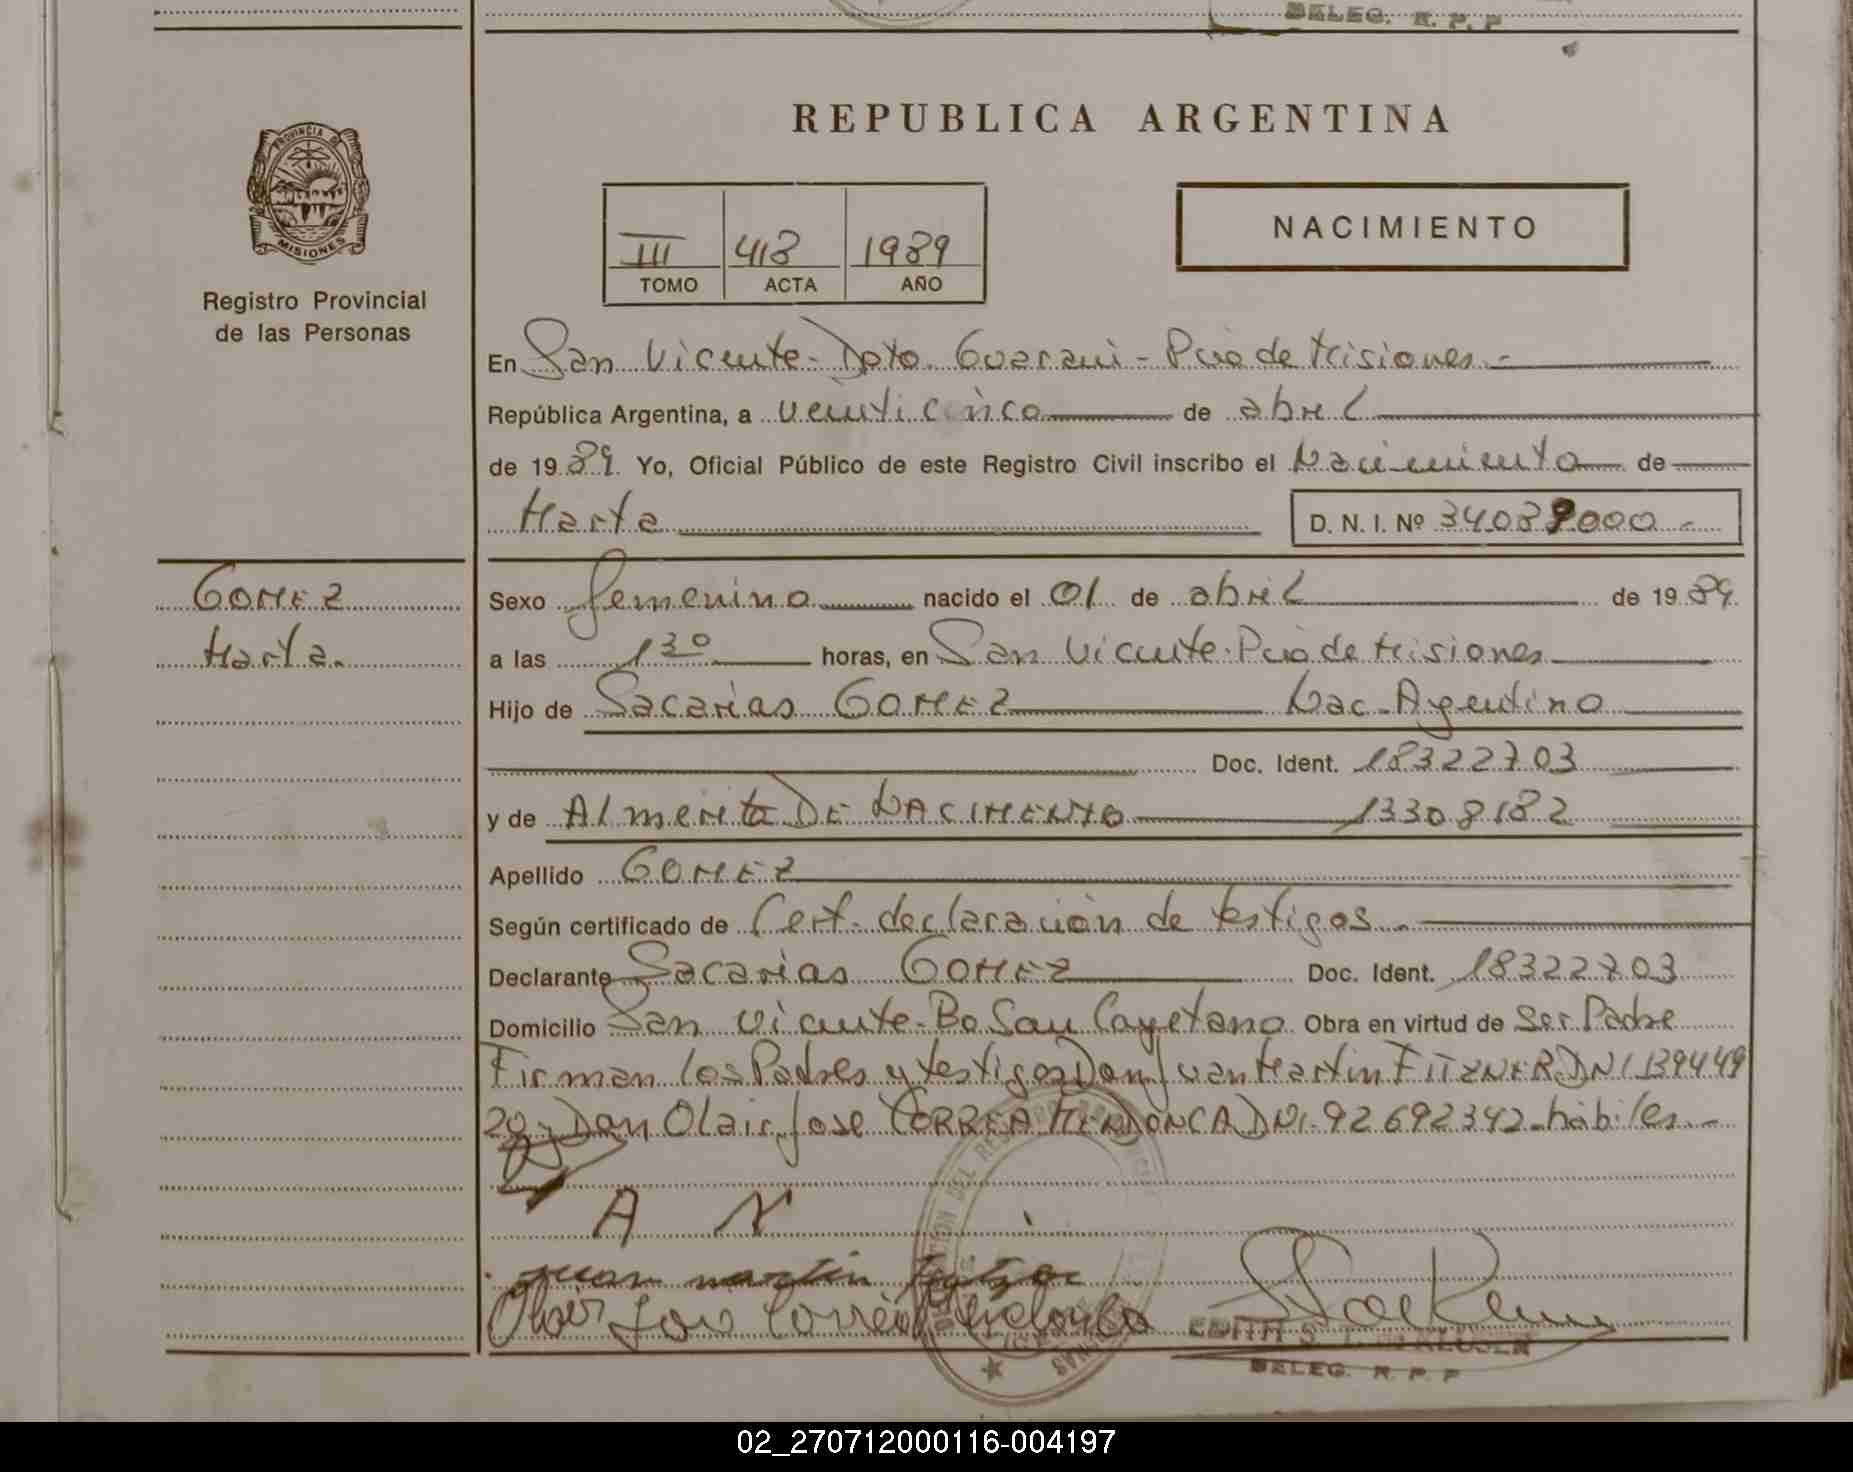 DELEG. R. P. P
PROVINCIA DE
MISIONES
Registro Provincial
de las Personas
REPUBLICA ARGENTINA
III 418 1989
TOMO ACTA AÑO
NACIMIENTO
En San Vicente - Dpto. Guarani - Pcia de Misiones.-
República Argentina, a veinticinco de abril
de 1989. Yo, Oficial Público de este Registro Civil inscribo el Nacimiento de
Marta D. N. I. Nº 34089000 -
GOMEZ
Marta.
Sexo femenino nacido el 01 de abril de 1989.
a las 1 30 horas, en San Vicente. Pcia de Misiones
Hijo de Sacarias GOMEZ Nac. Argentino
Doc. Ident. 18322703
y de Almerita DE NACIMENTO 13308182
Apellido GOMEZ
Según certificado de Cert. declaración de testigos.-
Declarante Sacarias GOMEZ Doc. Ident. 18322703
Domicilio San Vicente - Bo San Cayetano Obra en virtud de Ser Padre
Firman los Padres y testigos Don Juan Martin DNI 139449
20 y Don Olair Jose CORREA MENDONCA DNI. 92692342 - hábiles.-
A N
juan martin
Olair Jose Correa
EDITH S
DELEG. R. P. P
02_270712000116-004197